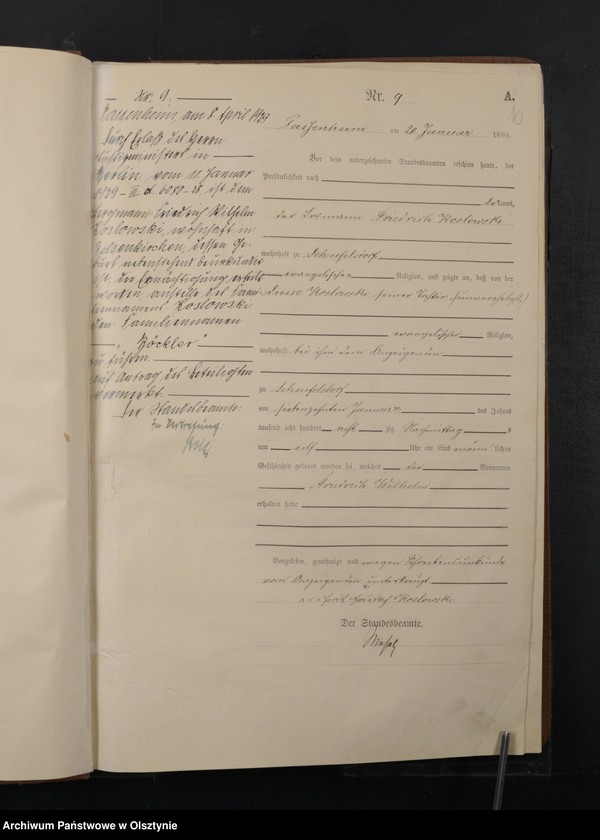 Nr. 9.
Passenheim, am 8 April 1929
Durch Erlaß des Herrn
Justizministers in
Berlin vom 11 Januar
1929 - III d. 6080-28 ist dem
Bergmann Friedrich Wilhelm
Koslowski, wohnhaft in
Gelsenkirchen, dessen Ge-
burt nebenstehend beurkundet
ist, die Ermächtigung erteilt
worden, anstelle des Fami-
liennamens Koslowski
den Familiennamen
„Böckler“
zu führen.
Auf Antrag des Beteiligten
vermerkt.
Der Standesbeamte:
In Vertretung:
Nr. 9
A.
6
Passenheim am 20 Januar 1880.
Vor dem unterzeichneten Standesbeamten erschien heute, der
Persönlichkeit nach
bekannt,
der Losmann Friedrich Koslowski
wohnhaft zu Scheufelsdorf
evangelischer Religion, und zeigte an, daß von der
Koslowski seiner Tochter
evangelischer Religion,
wohnhaft bei ihm dem Anzeigenden
zu Scheufelsdorf
am siebenzehnten Januar des Jahres
tausend acht hundert acht zig Nachmittag s
um elf Uhr ein Kind männlichen
Geschlechts geboren worden sei, welches die Vornamen
Friedrich Wilhelm
erhalten habe
Vorgelesen, genehmigt und wegen Schreibensunkunde
vom Anzeigenden unterkreuzt
xxx Friedrich Koslowski
Der Standesbeamte.
Archiwum Państwowe w Olsztynie